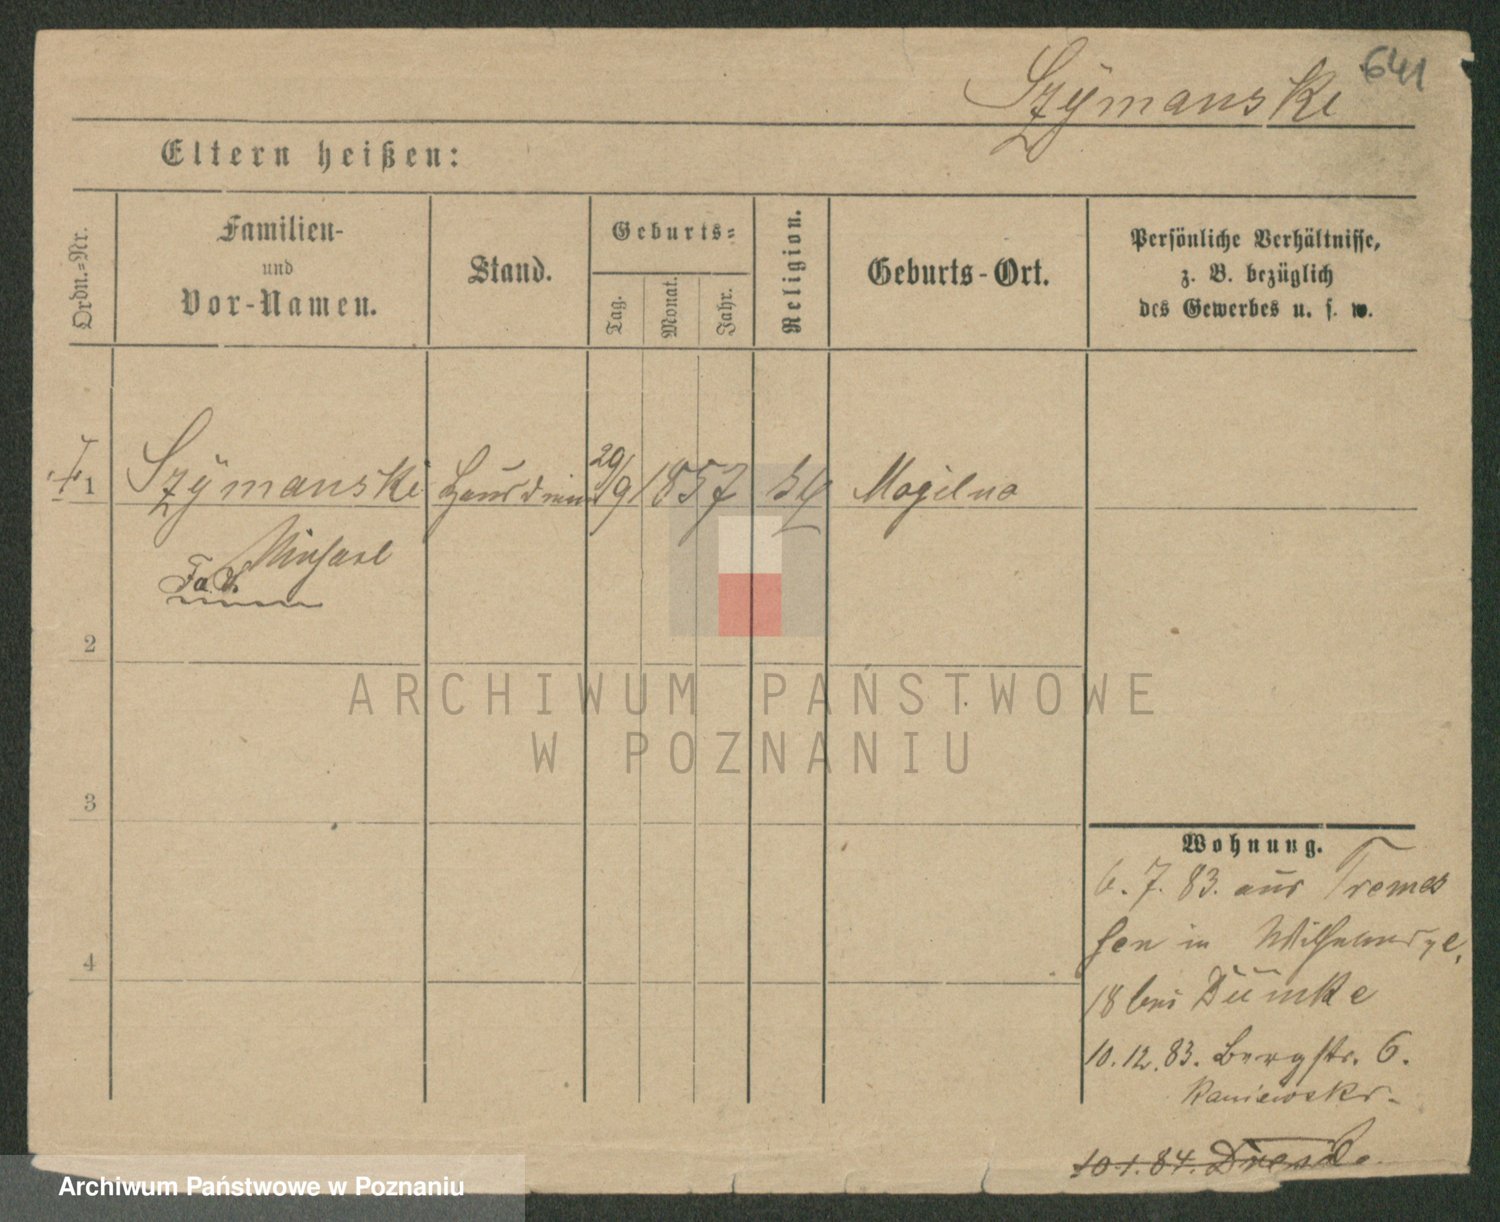 641
Szymanski
Eltern heißen:
Ordn.=Nr.
Familien-
und
Vor-Namen.
Stand.
Geburts=
Tag.
Monat.
Jahr.
Religion.
Geburts-Ort.
Persönliche Verhältnisse,
z. B. bezüglich
des Gewerbes u. s. w.
1 Szymanski 29/9 1857 Mogilno
Michael
2
3
4
Wohnung.
6. 7. 83. aus Tremes
sen in
18 bei Dümke
10.12.83. Bergstr. 6.
Kaniewski.
10.1.84.
ARCHIWUM PAŃSTWOWE
W POZNANIU
Archiwum Państwowe w Poznaniu